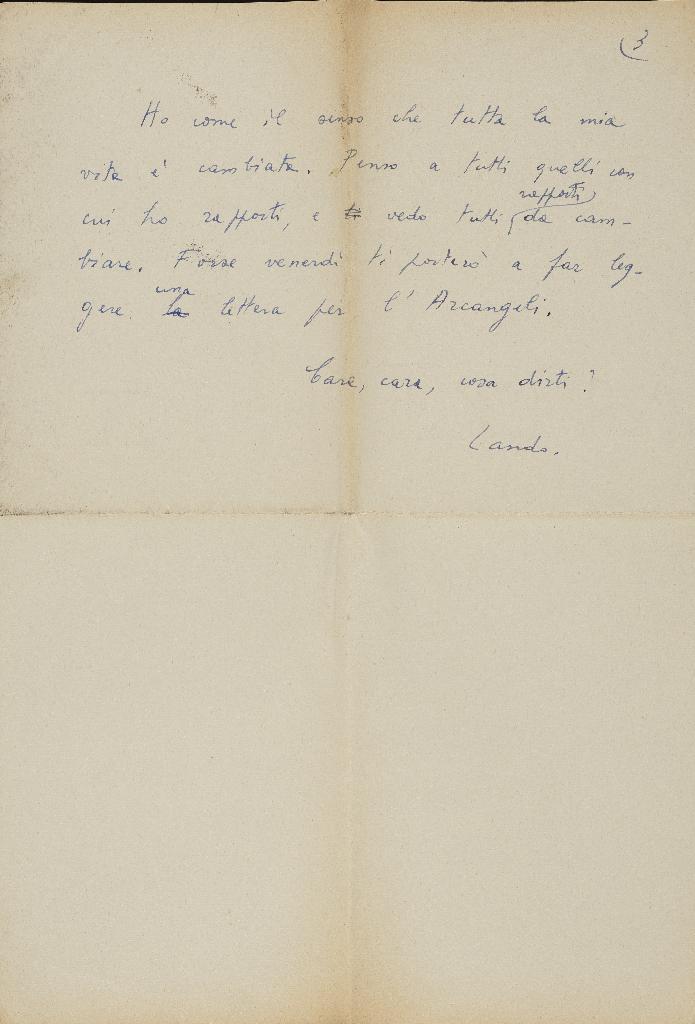 3
Ho come il senso che tutta la mia
vita è cambiata. Penso a tutti quelli con
cui ho rapporti, e ti vedo tutti rapporti da cam-
biare. Forse venerdì ti porterò a far leg-
gere la una lettera per l'Arcangeli.
Cara, cara, cosa dirti?
Lando.